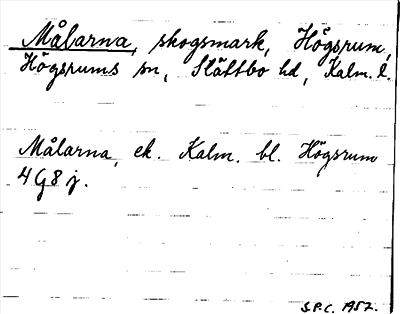 Målarna, skogsmark, Högsrum,
Högsrums sn, Slättbo hd, Kalm. l.
Målarna, ek. Kalm. bl. Högsrum
4G8j.
S.P.C. 1957.